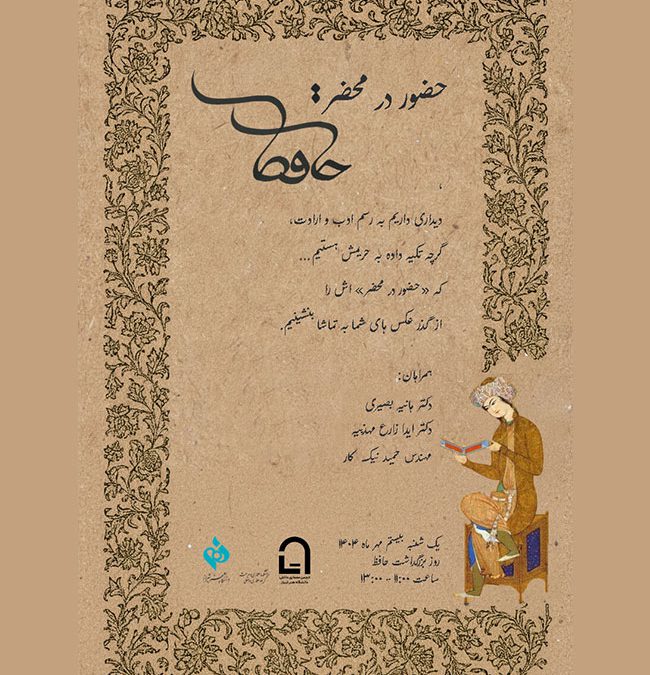 حضور در محضر
حافظ
،
دیداری داریم به رسم ادب و ارادت،
گرچه تکیه داده به حریمش هستیم...
که «حضور در محضر» اش را
از گذر عکس های شما به تماشا بنشینیم.
همراهان:
دکتر هانیه بصیری
دکتر آیدا زارع مهذبیه
مهندس حمید نیک کار
یک شنبه بیستم مهر ماه ۱۴۰۴
روز بزرگداشت حافظ
ساعت ۱۱:۰۰ - ۱۳:۰۰
انجمن معماری داخلی
دانشگاه هنر شیراز